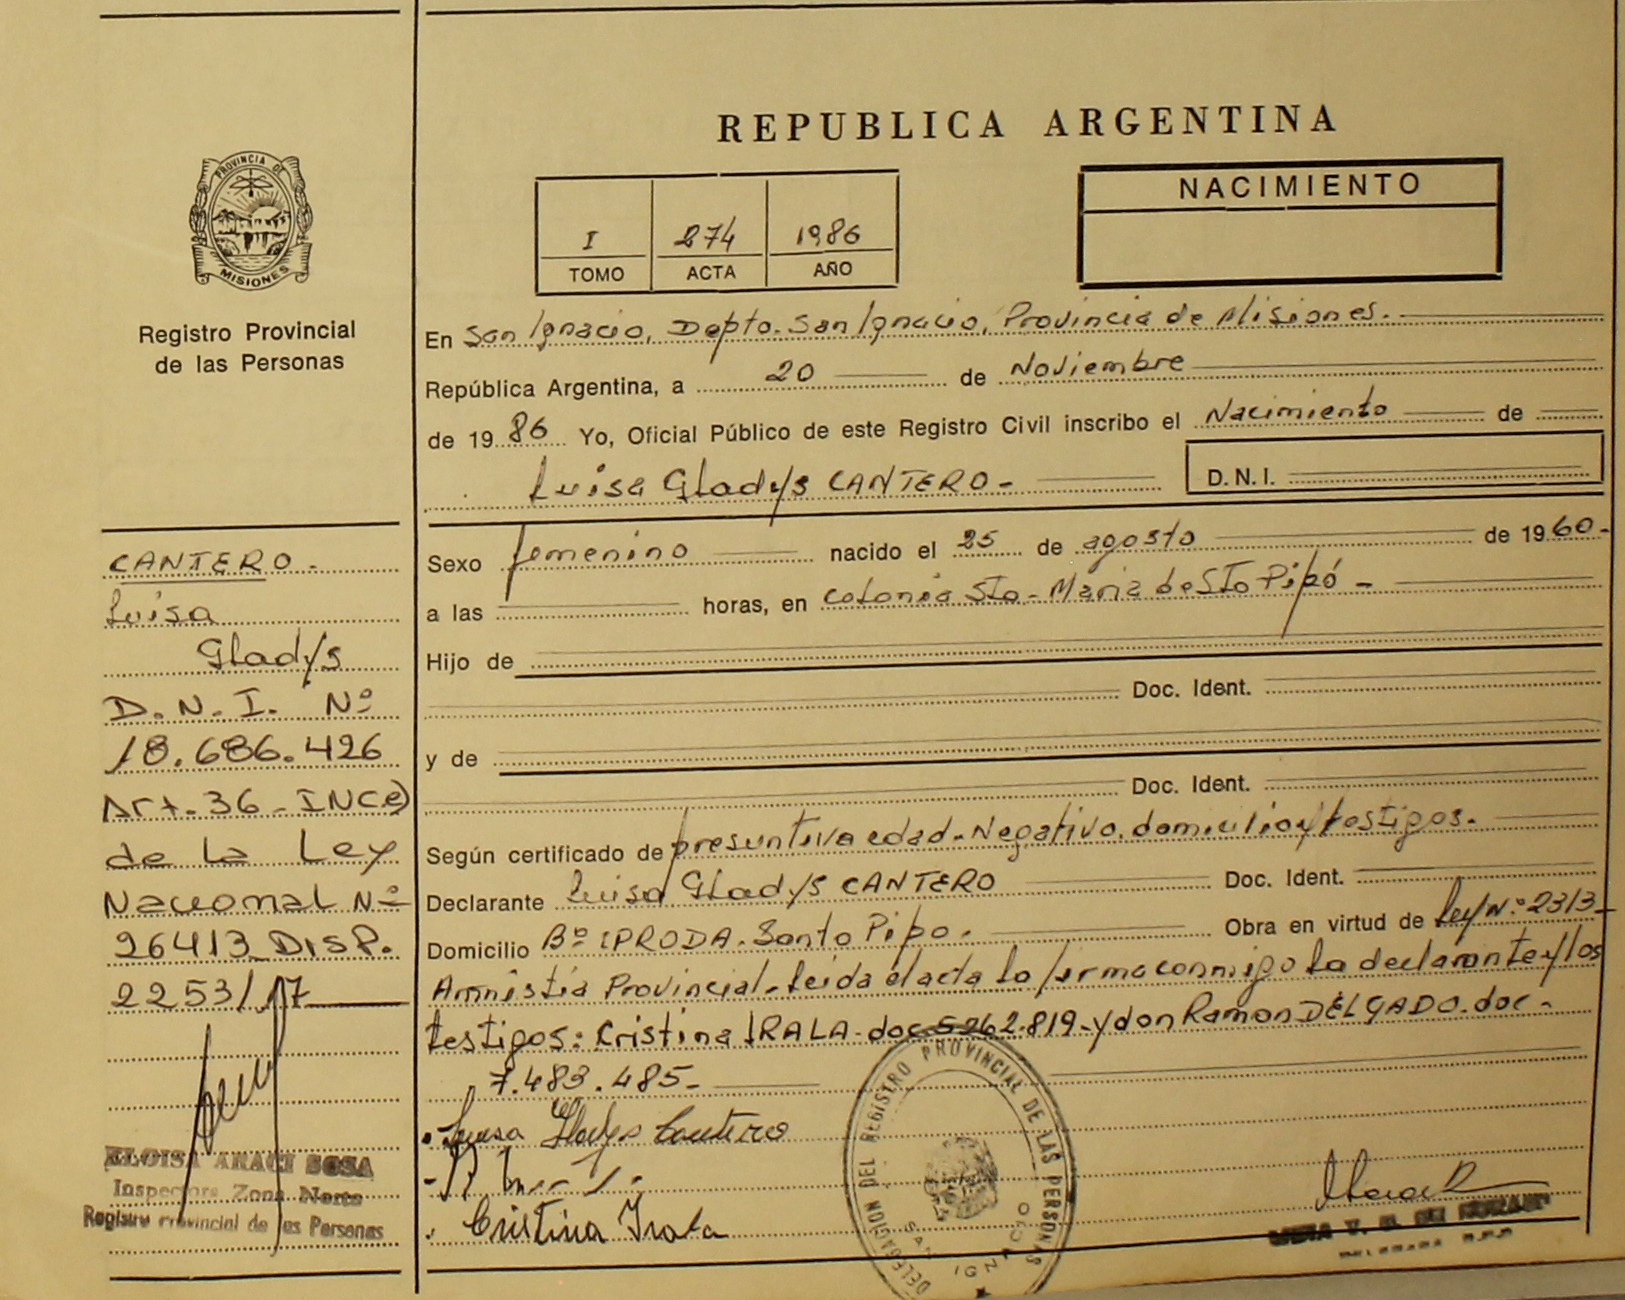 REPUBLICA ARGENTINA
PROVINCIA DE
MISIONES
Registro Provincial
de las Personas
NACIMIENTO
I 274 1986
TOMO ACTA AÑO
En San Ignacio, Depto. San Ignacio, Provincia de Misiones.
República Argentina, a 20 de Noviembre
de 1986 Yo, Oficial Público de este Registro Civil inscribo el Nacimiento de
Luisa Gladys CANTERO-
D.N.I.
Sexo femenino nacido el 25 de agosto de 1960-
a las horas, en Colonia Sta- Maria de Sto Pipó -
Hijo de
Doc. Ident.
y de
Doc. Ident.
Según certificado de presuntiva edad-Negativo, domicilio y testigos.
Declarante Luisa Gladys CANTERO Doc. Ident.
Domicilio Bº IPRODA. Santo Pipo. Obra en virtud de Ley Nº 2313-
Amnistía Provincial-Leida el acta la firma conmigo la declarante y los
testigos: Cristina IRALA-doc 5262.819-y don Ramon DELGADO.doc-
7.483.485-
Luisa Gladys Cantero
Cristina Irala
CANTERO-
Luisa
Gladys
D.N.I. Nº
18.686.426
Art. 36- INC e)
de la Ley
Nacional Nº
26413 DISP.
2253/17
ELOISA ARACI SOSA
Inspectora Zona Norte
Registro Provincial de las Personas
DELEGACION DEL REGISTRO PROVINCIAL DE LAS PERSONAS
SAN IGNACIO